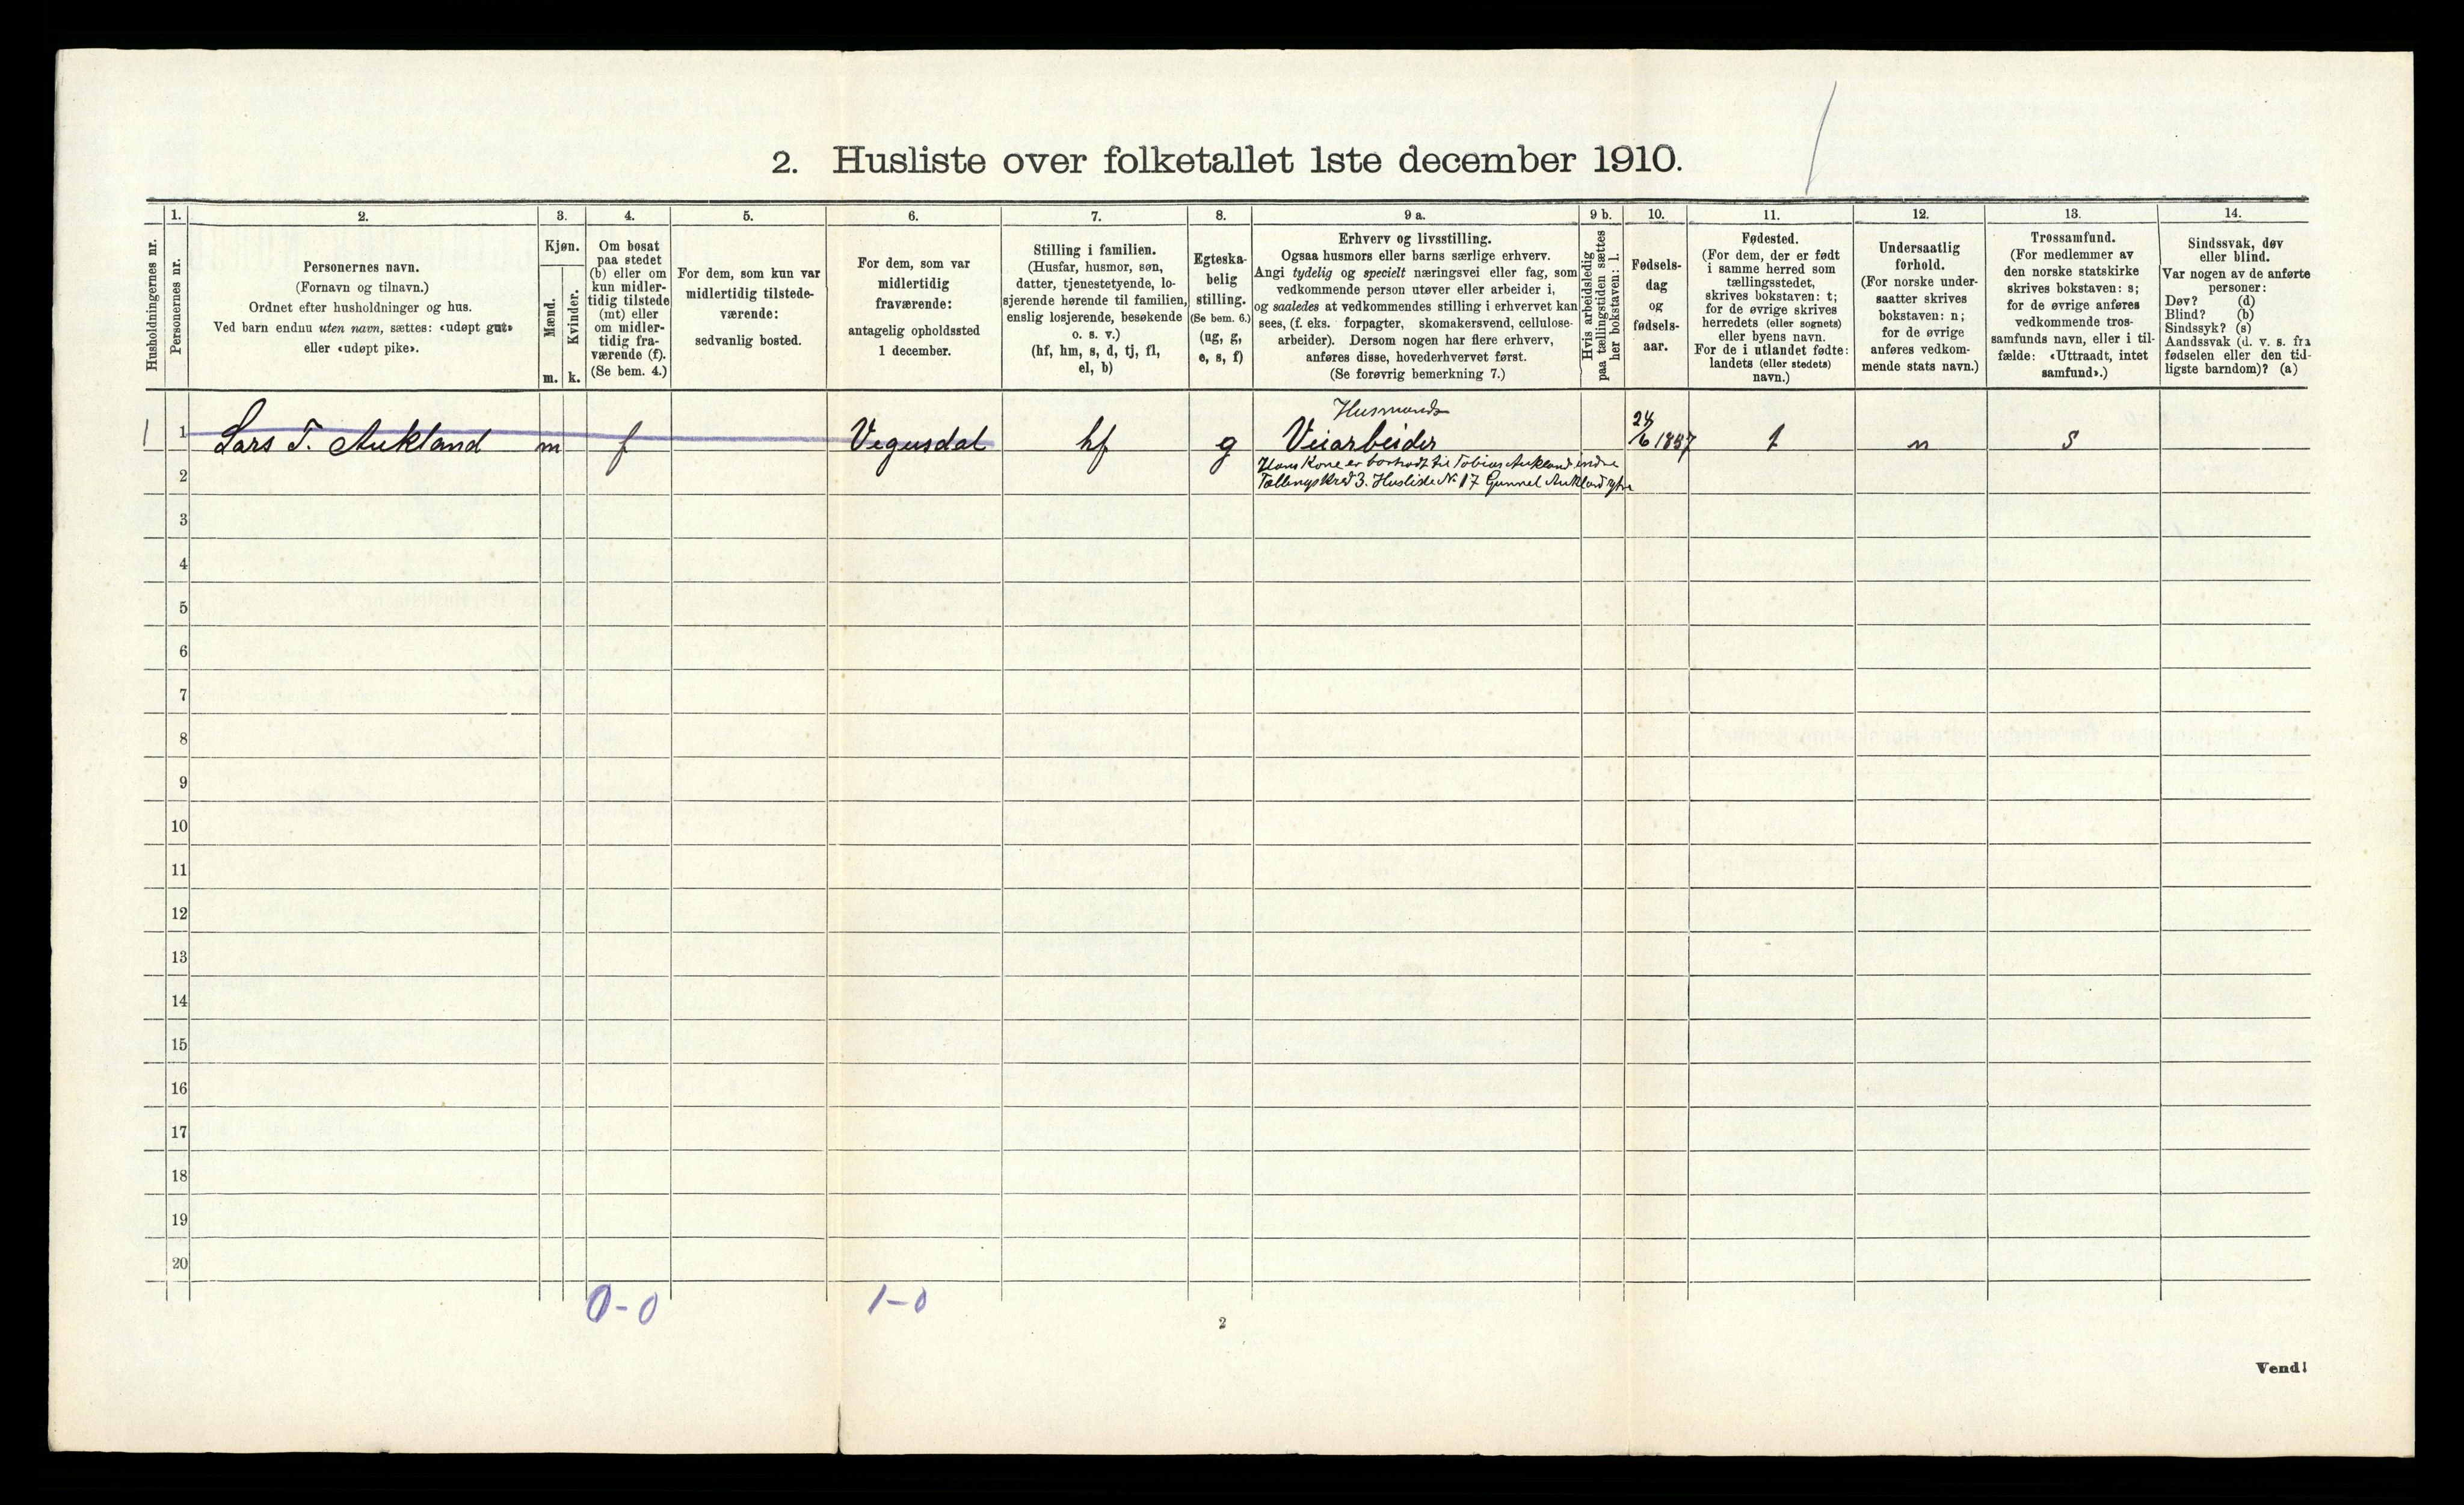 2. Husliste over folketallet 1ste december 1910.
Husholdningernes nr.
1.
Personernes nr.
2.
Personernes navn.
(Fornavn og tilnavn.)
Ordnet efter husholdninger og hus.
Ved barn endnu uten navn, sættes: «udøpt gut»
eller «udøpt pike».
3.
Kjøn.
Mænd.
m.
Kvinder.
k.
4.
Om bosat
paa stedet
(b) eller om
kun midler-
tidig tilstede
(mt) eller
om midler-
tidig fra-
værende (f).
(Se bem. 4.)
5.
For dem, som kun var
midlertidig tilstede-
værende:
sedvanlig bosted.
6.
For dem, som var
midlertidig
fraværende:
antagelig opholdssted
1 december.
7.
Stilling i familien.
(Husfar, husmor, søn,
datter, tjenestetyende, lo-
sjerende hørende til familien,
enslig losjerende, besøkende
o. s. v.)
(hf, hm, s, d, tj, fl,
el, b)
8.
Egteska-
belig
stilling.
(Se bem. 6.)
(ug, g,
e, s, f)
9 a.
Erhverv og livsstilling.
Ogsaa husmors eller barns særlige erhverv.
Angi tydelig og specielt næringsvei eller fag, som
vedkommende person utøver eller arbeider i,
og saaledes at vedkommendes stilling i erhvervet kan
sees, (f. eks. forpagter, skomakersvend, cellulose-
arbeider). Dersom nogen har flere erhverv,
anføres disse, hovederhvervet først.
(Se forøvrig bemerkning 7.)
9 b.
Hvis arbeidsledig
paa tællingstiden sættes
her bokstaven: l.
10.
Fødsels-
dag
og
fødsels-
aar.
11.
Fødested.
(For dem, der er født
i samme herred som
tællingsstedet,
skrives bokstaven: t;
for de øvrige skrives
herredets (eller sognets)
eller byens navn.
For de i utlandet fødte:
landets (eller stedets)
navn.)
12.
Undersaatlig
forhold.
(For norske under-
saatter skrives
bokstaven: n;
for de øvrige
anføres vedkom-
mende stats navn.)
13.
Trossamfund.
(For medlemmer av
den norske statskirke
skrives bokstaven: s;
for de øvrige anføres
vedkommende tros-
samfunds navn, eller i til-
fælde: «Uttraadt, intet
samfund».)
14.
Sindssvak, døv
eller blind.
Var nogen av de anførte
personer:
Døv? (d)
Blind? (b)
Sindssyk? (s)
Aandssvak (d. v. s. fra
fødselen eller den tid-
ligste barndom)? (a)
Husmands
1 1 Lars T. Aukland m f Vegusdal hf g Veiarbeider 24/6 1857 t n s
Hans Kone er bortradt til Tobias Aukland indre
2 Tællingskred 3. Husliste No 17 Gunnel Aukland ytre
3
4
5
6
7
8
9
10
11
12
13
14
15
16
17
18
19
20
0-0 1-0
2
Vend!